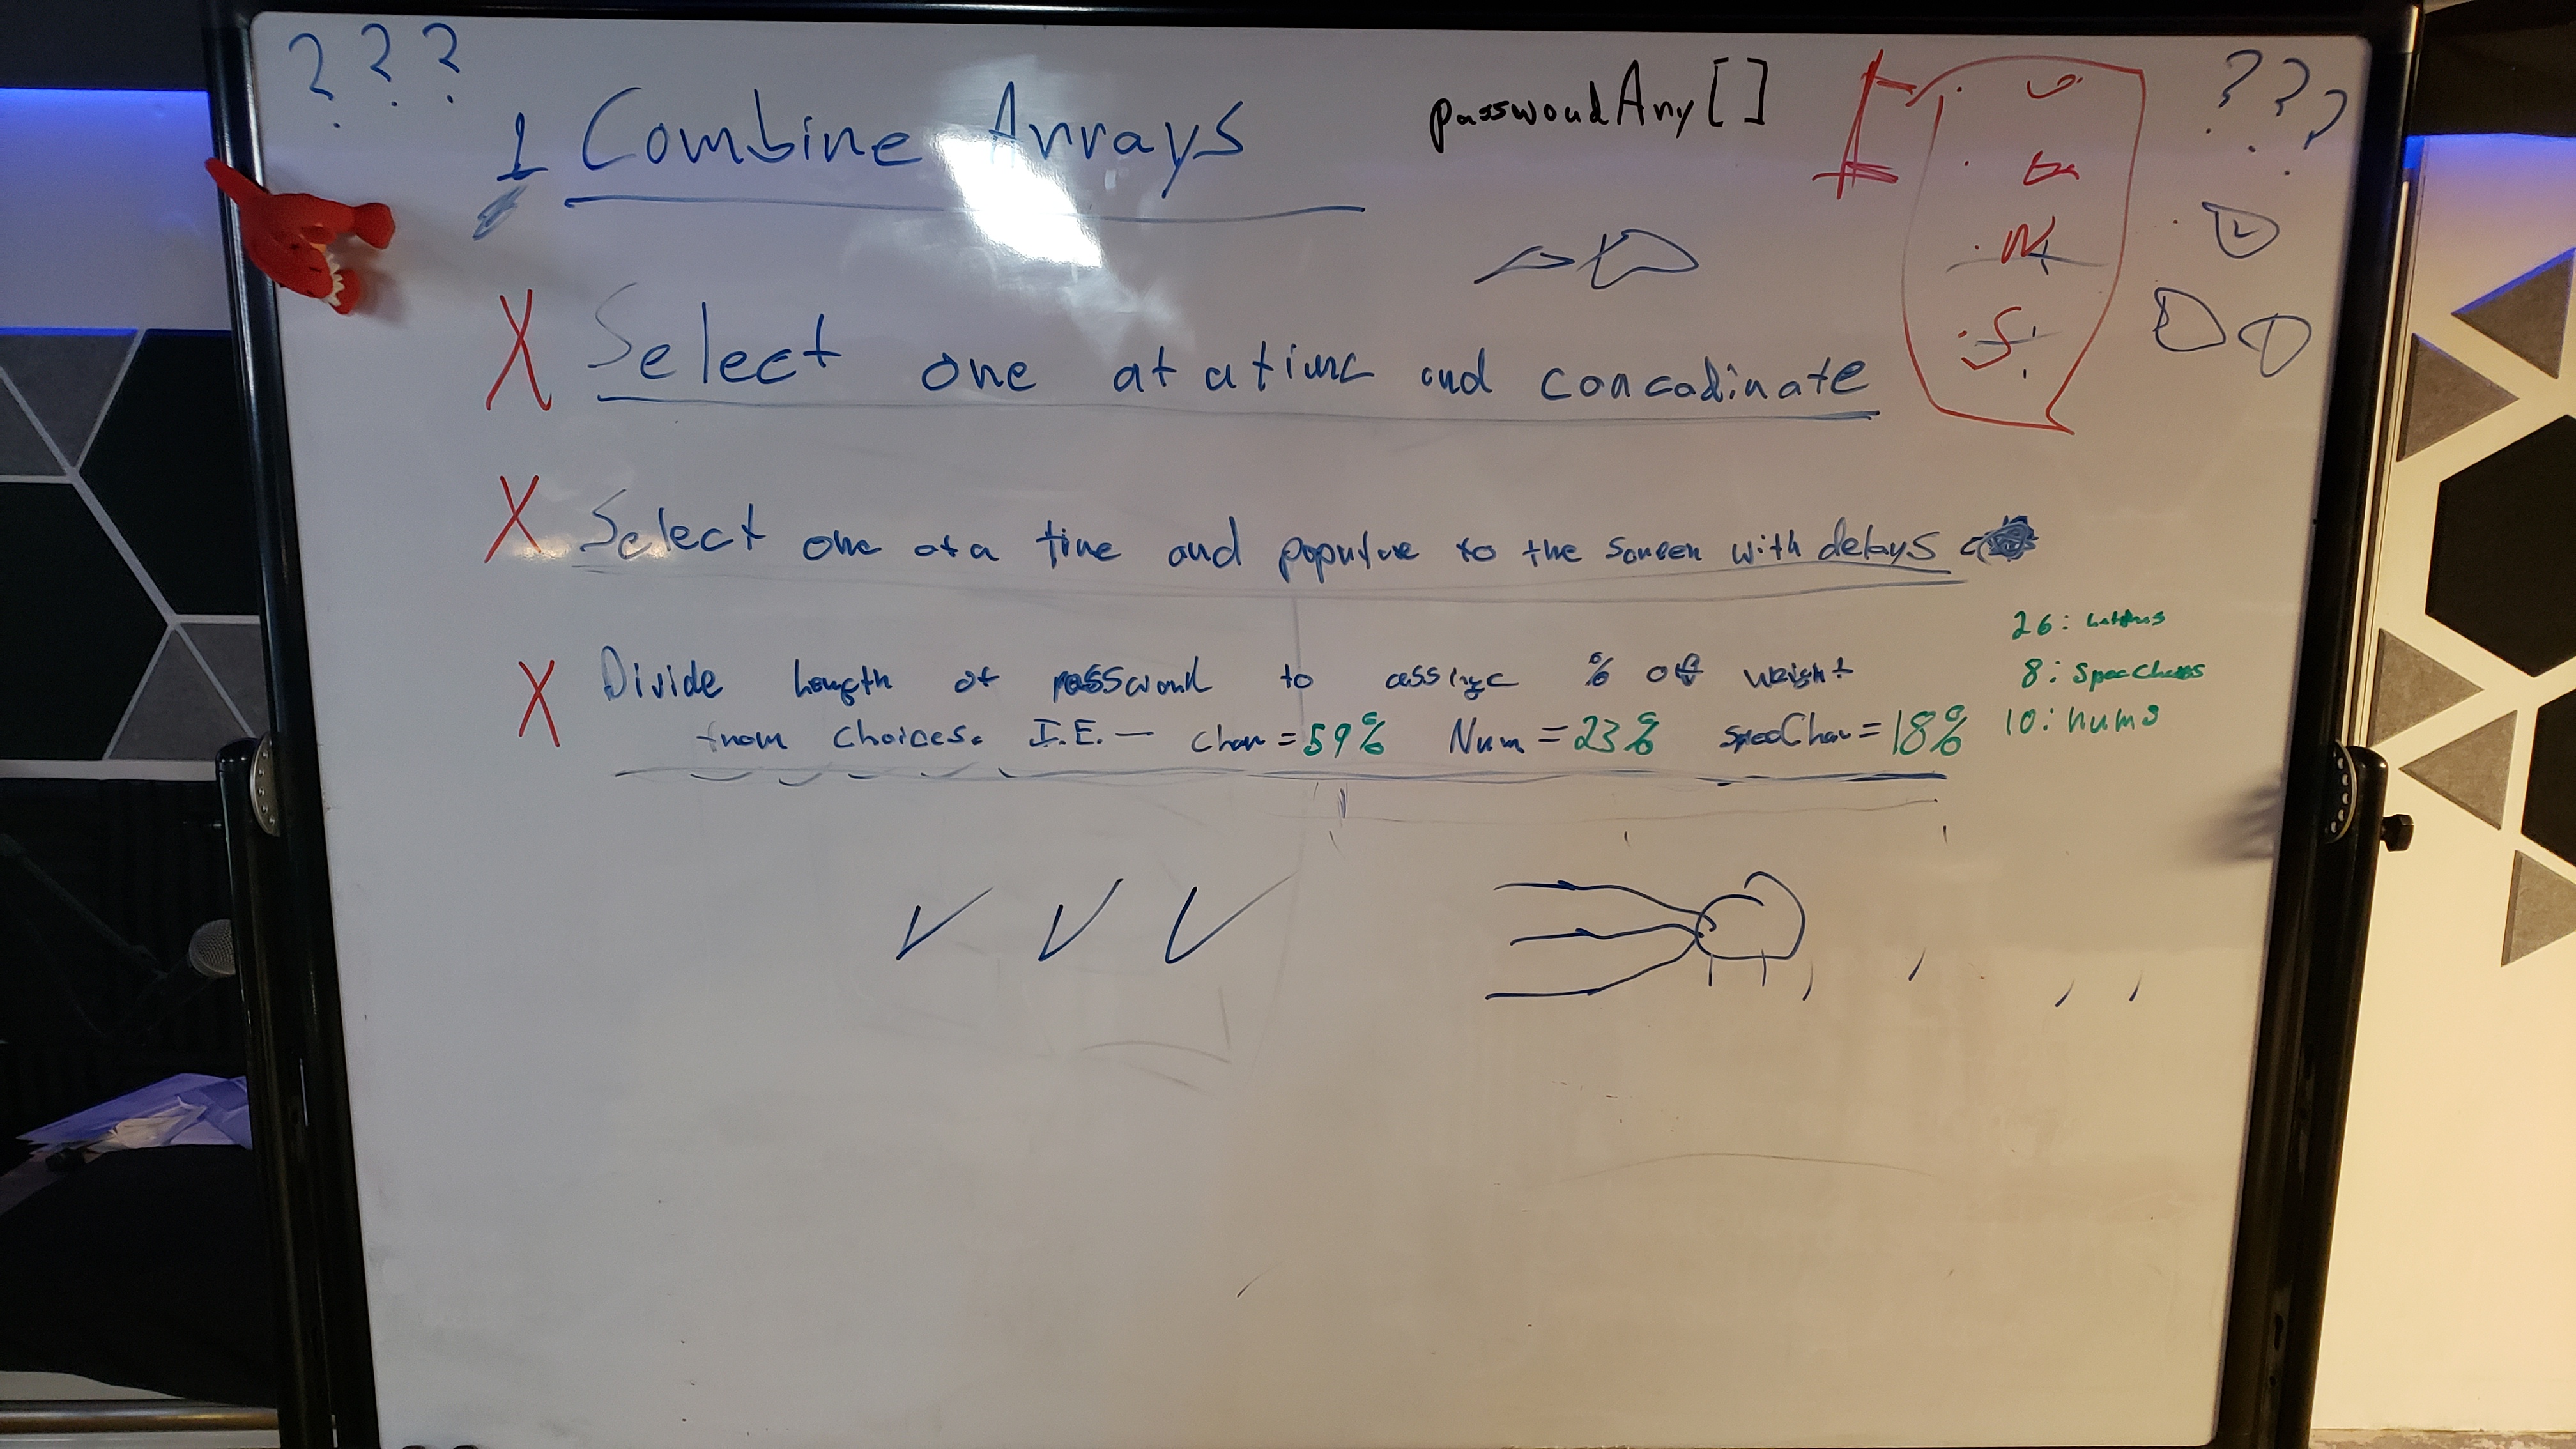 ? ? ?
1 Combine Arrays
passwordArry[]
? ? ?
N
S
X Select one at a time and concadinate
X Select one at a time and populate to the screen with delays
X Divide length of password to assign % of weight
from choices. I.E. — char = 59% Num = 23% specChar = 18%
26: letters
8: specChars
10: nums